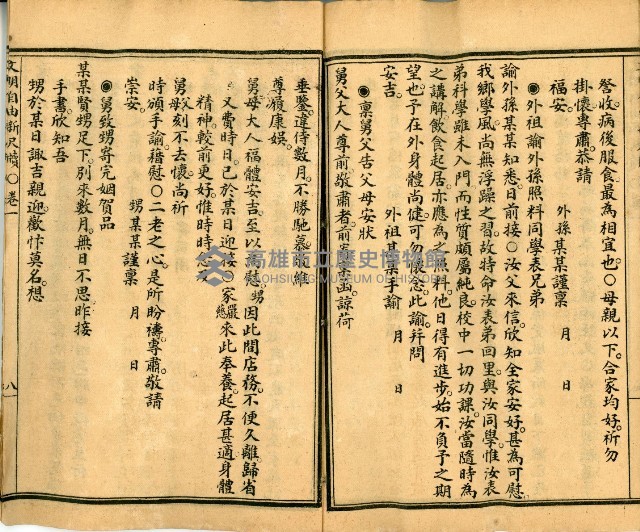 謦收病後服食最為相宜也○母親以下合家均好祈勿
掛懷專肅恭請
福安　外孫某某謹稟　月　日
◉外祖諭外孫照料同學表兄弟
諭外孫某某知悉日前接○汝父來信欣知全家安好甚為可慰
我鄉學風尚無浮躁之習故特命汝表弟回里與汝同學惟汝表
弟科學雖未入門而性質頗屬純良校中一切功課汝當隨時為
之講解飲食起居亦應為之照料他日得有進步始不負予之期
望也予在外身體尚健可勿懷念此諭並問
安吉　外祖某某手諭　月　日
◉稟舅父告父母安狀
舅父大人尊前敬肅者前奉　函諒荷
垂鑒違侍數月不勝馳　維
尊履康娛
舅母大人福體安吉至以　慰甥因此間店務不便久離歸省
又費時日已於某日迎接○家嚴慈來此奉養起居甚適身體
精神較前更好惟時時
舅父母刻不去懷尚祈
時頒手諭藉慰○二老之心是所盼禱專肅敬請
崇安　甥某某謹稟　月　日
◉舅致甥寄完姻賀品
某某賢甥足下別來數月無日不思昨接
手書欣知吾
甥於某日諏吉親迎歡忭莫名想
文明自由新尺牘○卷一　八
高雄市立歷史博物館
KAOHSIUNG MUSEUM OF HISTORY